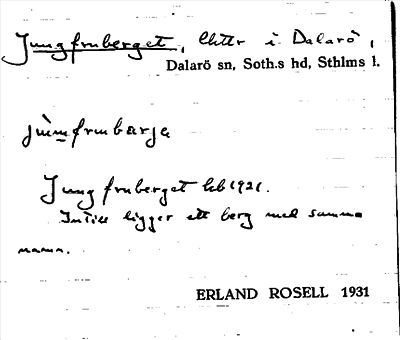 Jungfruberget, lhttr i Dalarö,
Dalarö sn, Soth.s hd, Sthlms l.
jùmfrubarja
Jungfruberget lsb 1921.
Intill ligger ett berg med samma
namn.
ERLAND ROSELL 1931